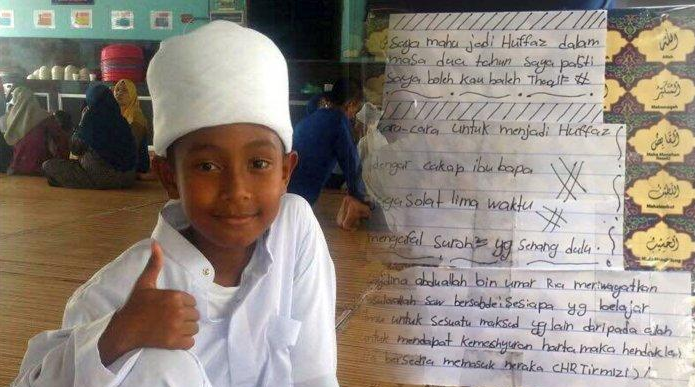 Saya mahu jadi Huffaz dalam
masa dua tahun saya pasti
saya boleh kau boleh Thaqif
cara-cara untuk menjadi Huffaz
dengar cakap ibu bapa
jaga Solat lima waktu
mengafal Suroh² yg senang dulu.
abduallah bin umar Ra meriwayatkan
saw bersabde: Sesiapa yg belajar
untuk sesuatu maksud yg lain daripada allah
untuk mendapat kemeshyuran harta, maka hendaklai
bersedia memasuk neraka (HR Tirmizi)
الله
Allah
القابض
اللطيف
الحسيب